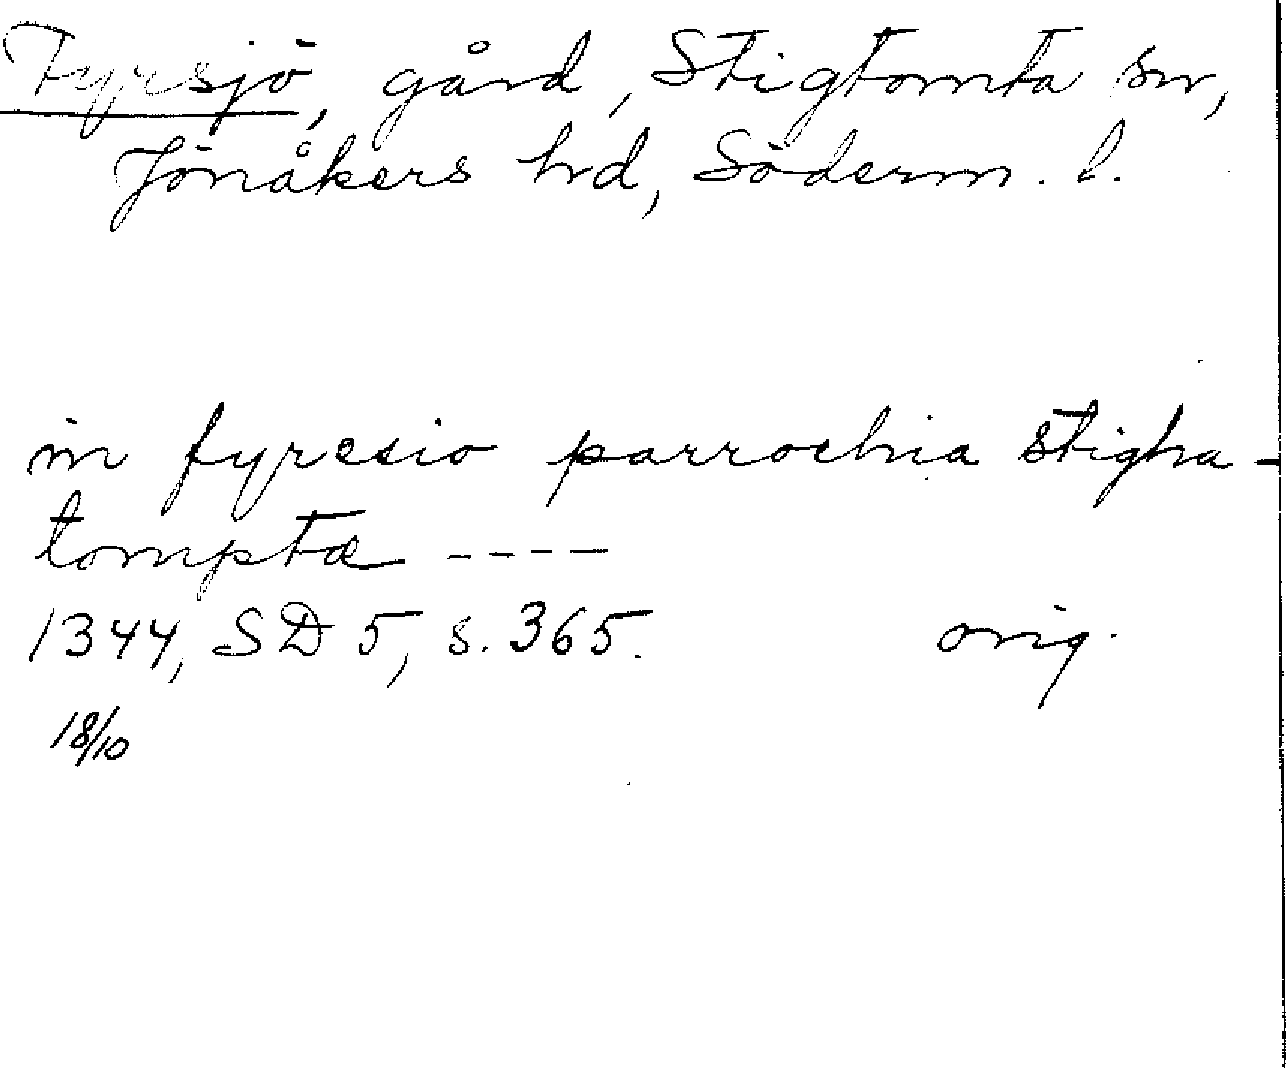 Fyrsjö, gård, Stigtomta sn,
Jönåkers hd, Söderm. l.
in fyresio parrochia stigha-
tomptæ ----
1344, SD 5, s. 365. orig.
18/10